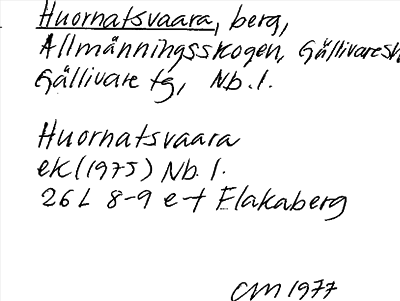 Huornatsvaara, berg,
Allmänningsskogen, Gällivaresk
Gällivare tg, Nb.l.
Huornatsvaara
ek (1975) Nb. l.
26 L 8-9 e-f Elakaberg
CM 1977